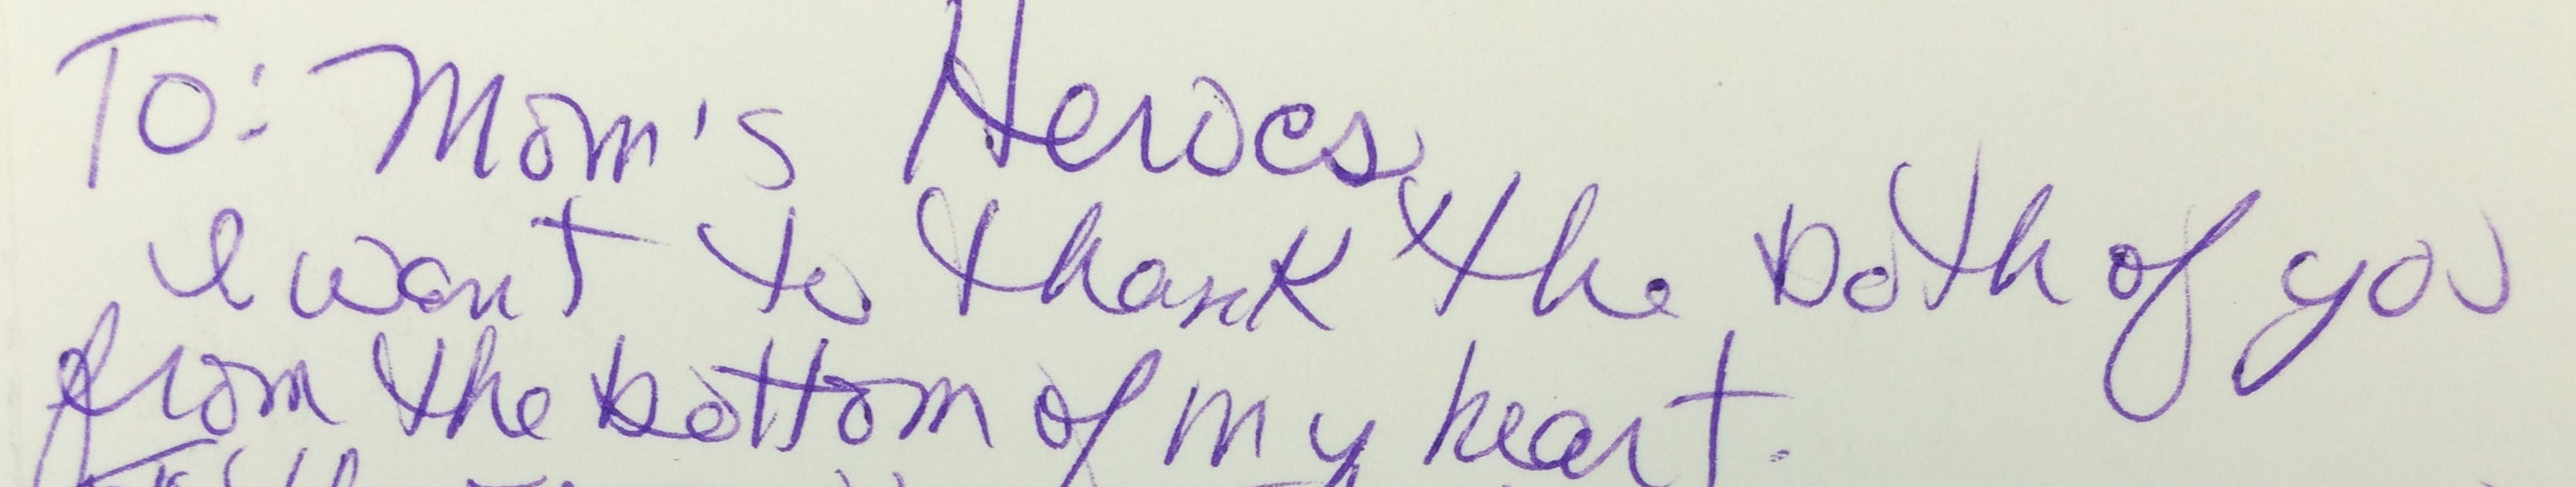 To: Mom's Heroes
I want to thank the both of you
from the bottom of my heart.